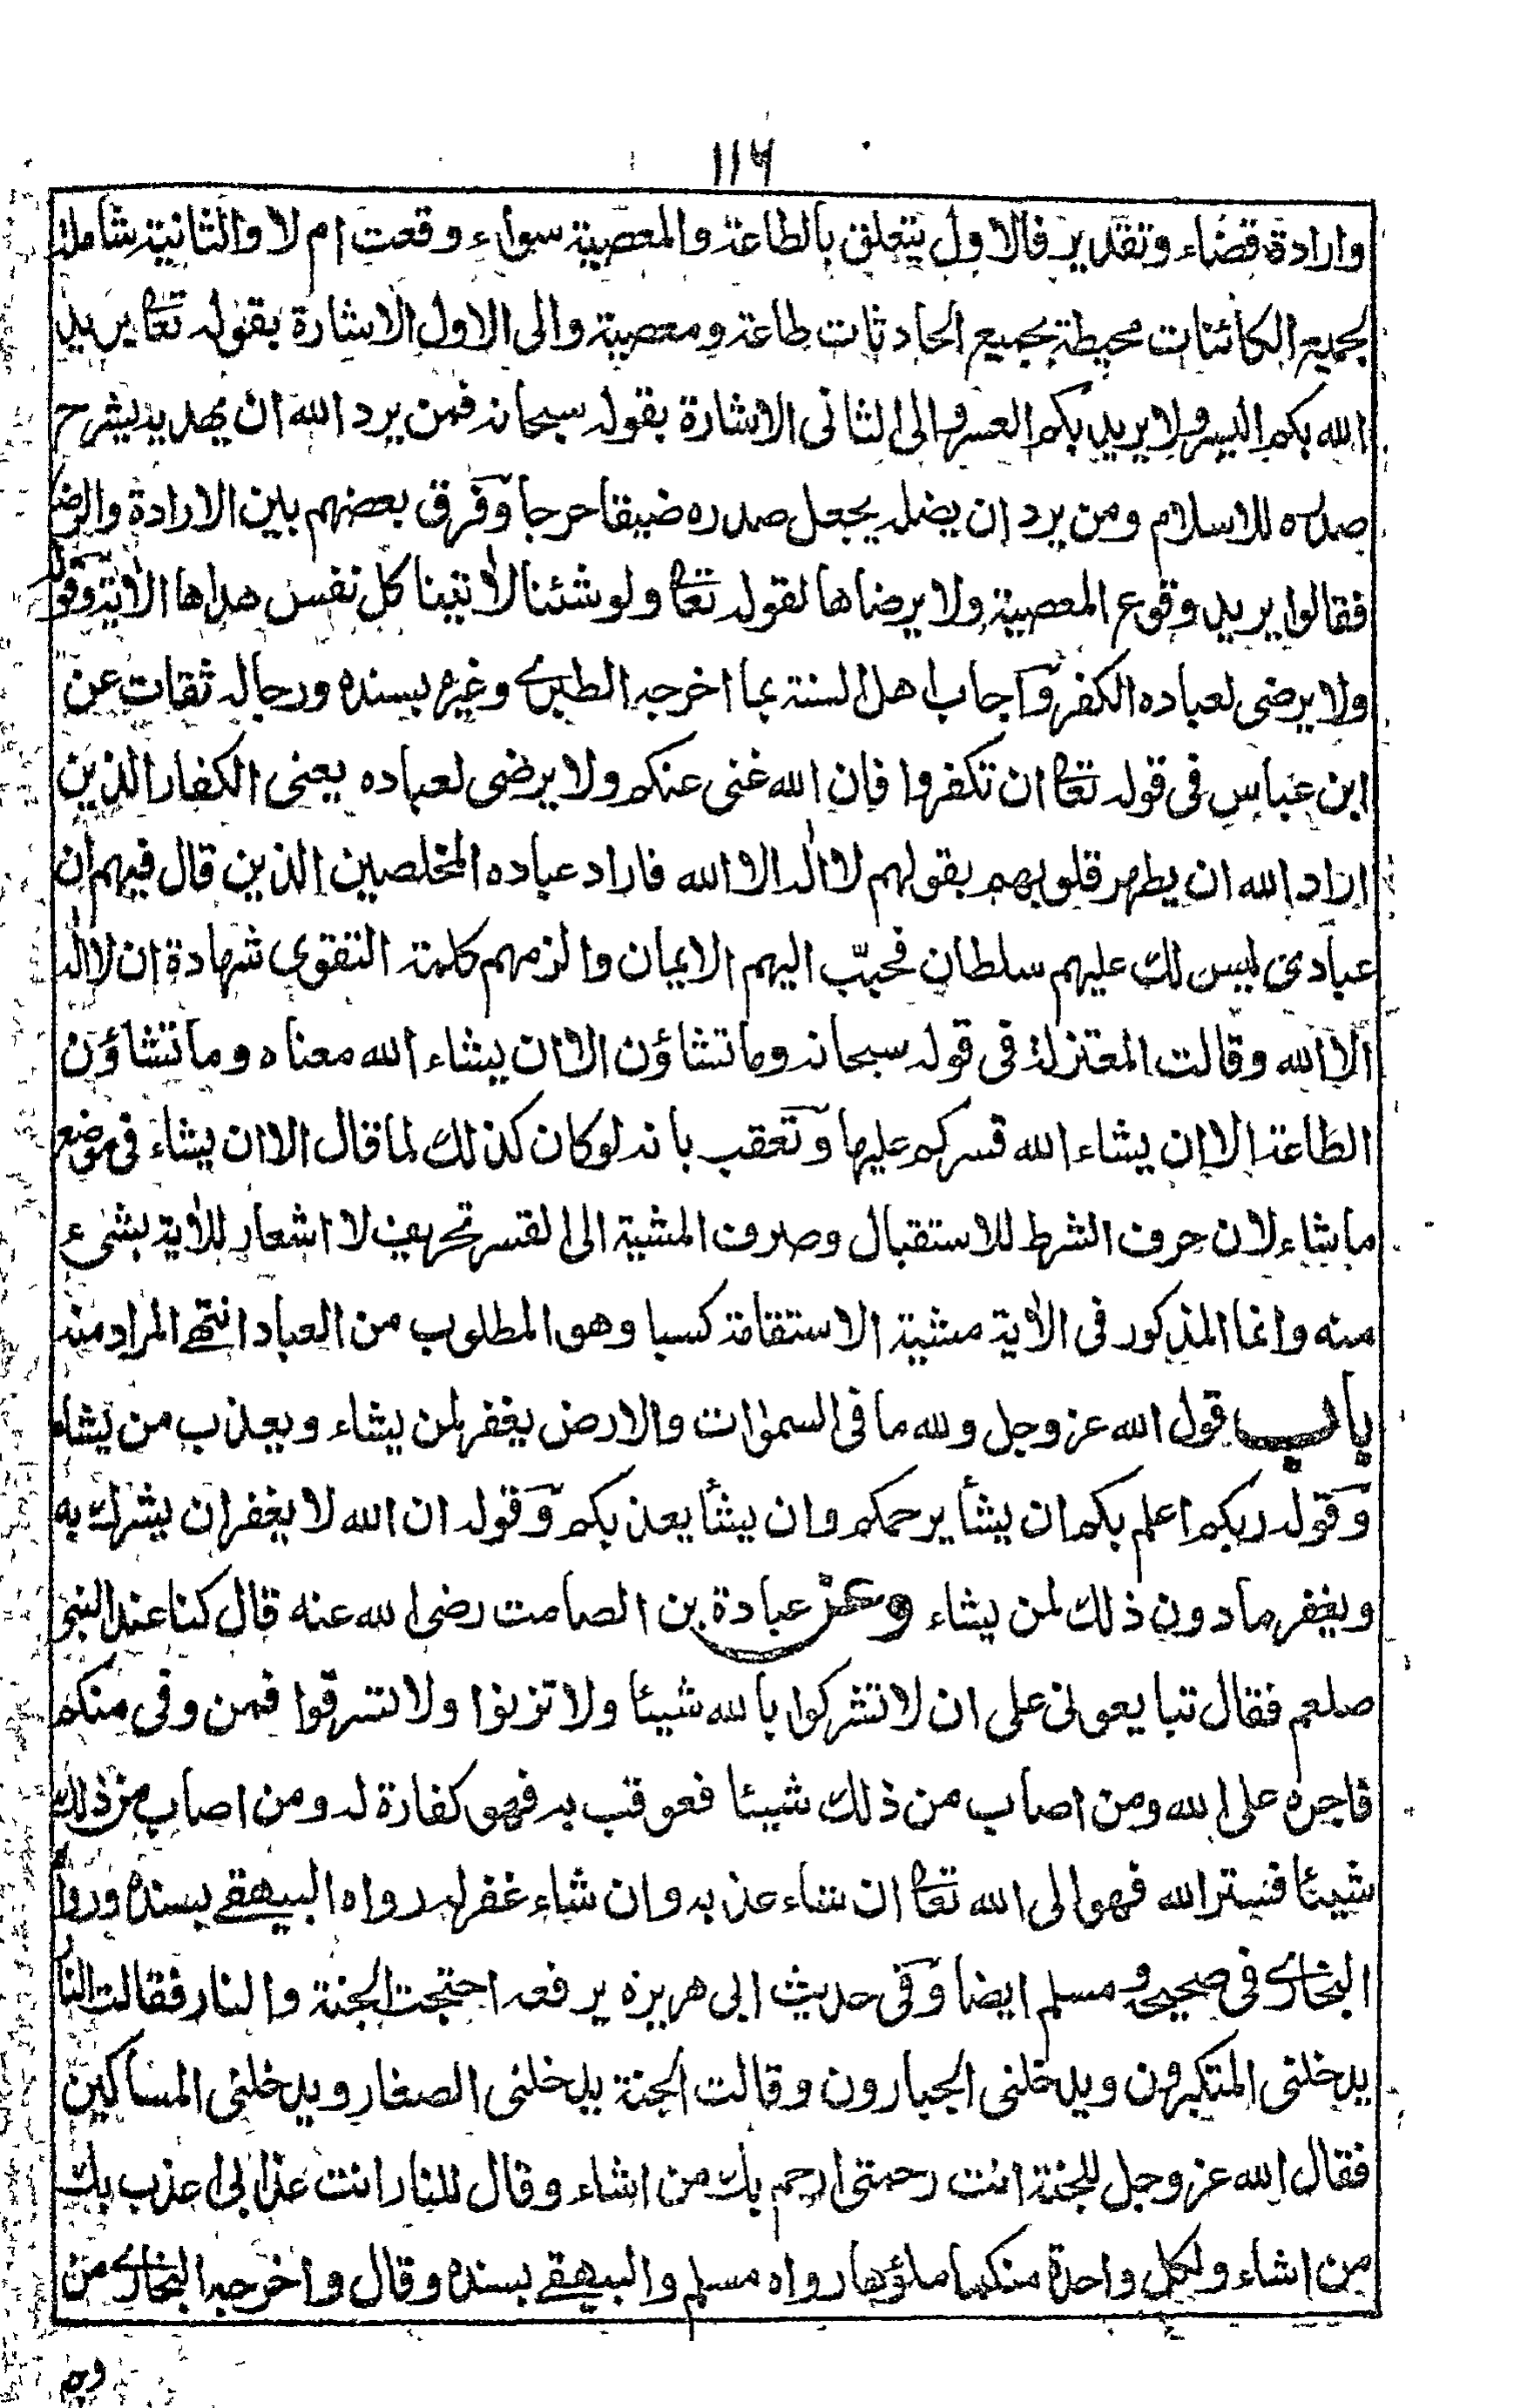 ۱۱۶
وارادة قضاء وتقدير فالاول يتعلق بالطاعة والمعصية سواء وقعت ام لا والثانية شاملة
لجميع الكائنات محيطة بجميع الحادثات طاعة ومعصية والى الاول الاشارة بقوله تعا يريد
الله بكم اليسر ولا يريد بكم العسر والى الثانى الاشارة بقوله سبحانه فمن يرد الله ان يهديه يشرح
صدره للاسلام ومن يرد ان يضله يجعل صدره ضيقا حرجا وفرق بعضهم بين الارادة والرضا
فقالوا يريد وقوع المعصية ولا يرضاها لقوله تعا ولو شئنا لاتينا كل نفس هداها الاية وقوله
ولا يرضى لعباده الكفر واجاب اهل السنة بما اخرجه الطبرى وغيره بسنده ورجاله ثقات عن
ابن عباس فى قوله تعا ان تكفروا فان الله غنى عنكم ولا يرضى لعباده يعنى الكفار الذين
اراد الله ان يطهر قلوبهم بقولهم لا اله الا الله فاراد عباده المخلصين الذين قال فيهم ان
عبادى ليس لك عليهم سلطان فحبّب اليهم الايمان والزمهم كلمة التقوى شهادة ان لا اله
الا الله وقالت المعتزلة فى قوله سبحانه وما تشاؤن الا ان يشاء الله معناه وما تشاؤن
الطاعة الا ان يشاء الله قسركم عليها وتعقب بانه لو كان كذلك لما قال الا ان يشاء فى موضع
ما شاء لان حرف الشرط للاستقبال وصرف المشية الى القسر تحريف لا اشعار للاية بشىء
منه وانما المذكور فى الاية مشية الاستقامة كسبا وهو المطلوب من العباد انتهى المراد منه
باب قول الله عز وجل ولله ما فى السموات والارض يغفر لمن يشاء ويعذب من يشاء
وقوله ربكم اعلم بكم ان يشأ يرحمكم وان يشأ يعذبكم وقوله ان الله لا يغفر ان يشرك به
ويغفر ما دون ذلك لمن يشاء وعن عبادة بن الصامت رضى الله عنه قال كنا عند النبى
صلعم فقال تبايعونى على ان لا تشركوا بالله شيئا ولا تزنوا ولا تسرقوا فمن وفى منكم
فاجره على الله ومن اصاب من ذلك شيئا فعوقب به فهو كفارة له ومن اصاب من ذلك
شيئا فستر الله فهو الى الله تعا ان شاء عذبه وان شاء غفر له رواه البيهقى بسنده ورواه
البخارى فى صحيحه ومسلم ايضا وفى حديث ابى هريرة يرفعه احتجت الجنة والنار فقالت النار
يدخلنى المتكبرون ويدخلنى الجبارون وقالت الجنة يدخلنى الصغار ويدخلنى المساكين
فقال الله عز وجل للجنة انت رحمتى ارحم بك من اشاء وقال للنار انت عذابى اعذب بك
من اشاء ولكل واحدة منكما ملؤها رواه مسلم والبيهقى بسنده وقال واخرجه البخارى من
وجه